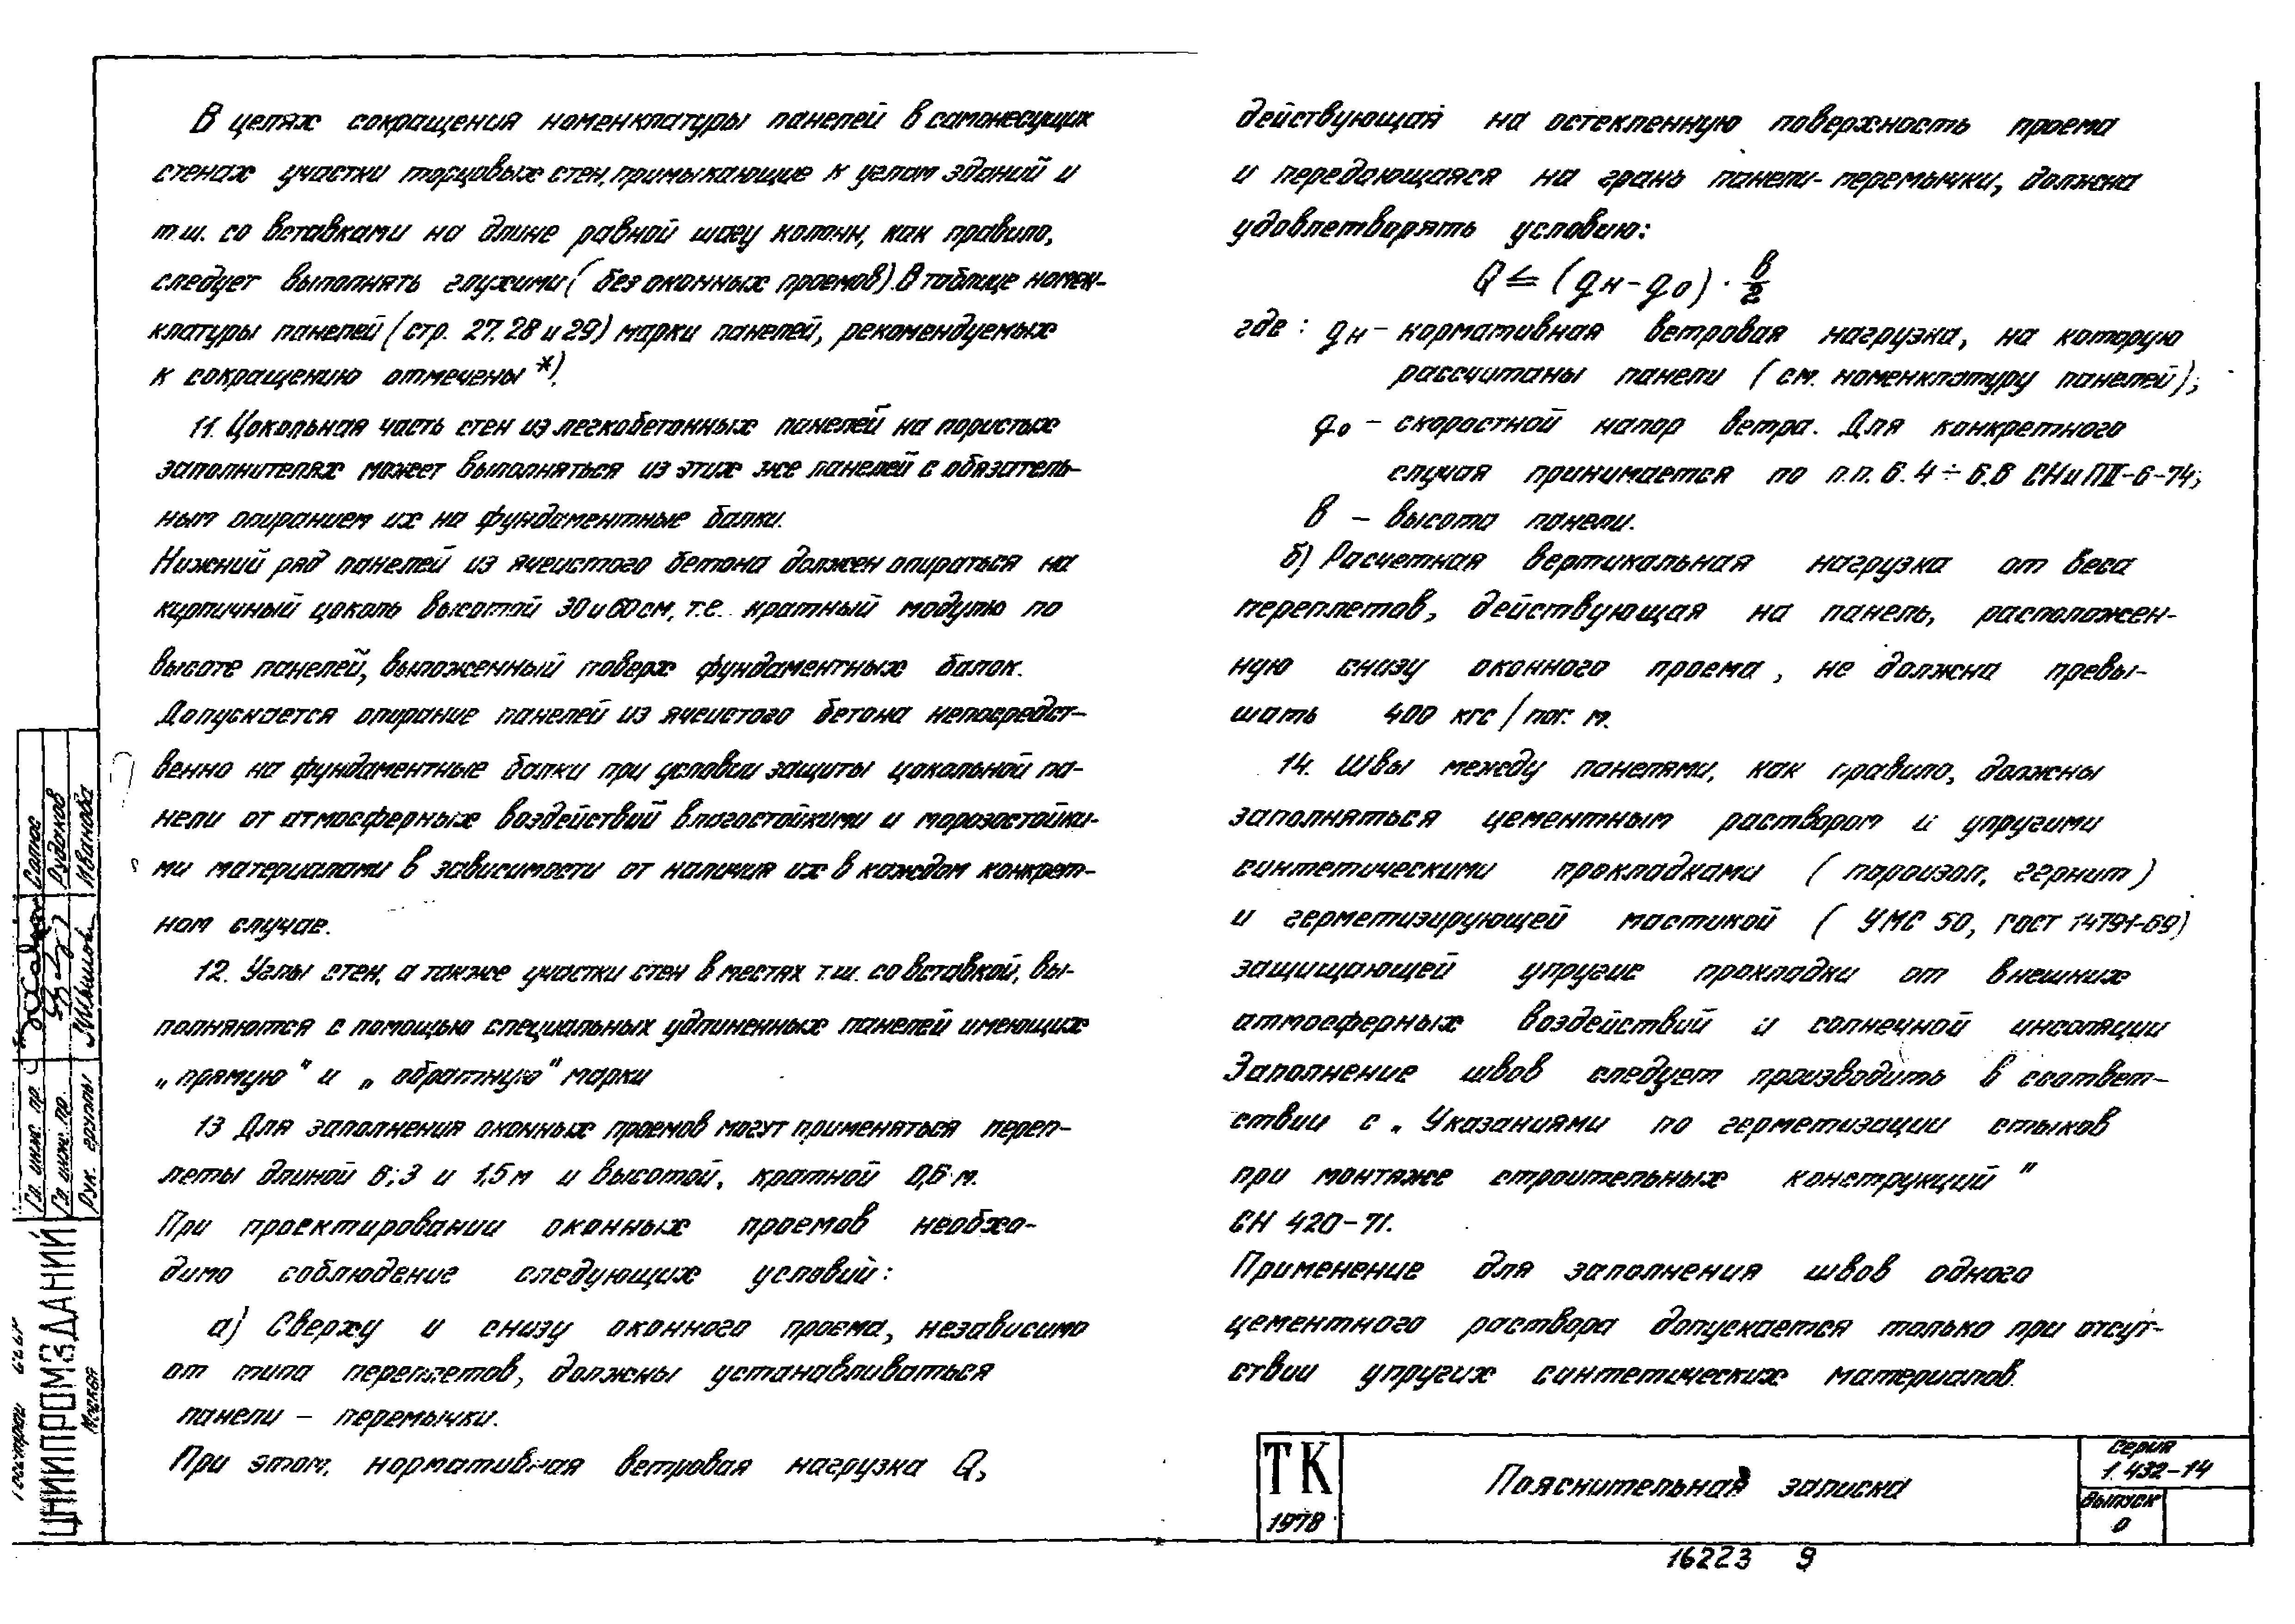 В целях сокращения номенклатуры панелей в самонесущих
стенах участки торцовых стен, примыкающие к углам зданий и
т.ш. со вставками на длине равной шагу колонн, как правило,
следует выполнять глухими (без оконных проемов). В таблице номен-
клатуры панелей (стр. 27, 28 и 29) марки панелей, рекомендуемых
к сокращению отмечены *).
11. Цокольная часть стен из легкобетонных панелей на пористых
заполнителях может выполняться из этих же панелей с обязатель-
ным опиранием их на фундаментные балки.
Нижний ряд панелей из ячеистого бетона должен опираться на
кирпичный цоколь высотой 30 и 60 см, т.е. кратный модулю по
высоте панелей, выложенный поверх фундаментных балок.
Допускается опирание панелей из ячеистого бетона непосредст-
венно на фундаментные балки при условии защиты цокольной па-
нели от атмосферных воздействий влагостойкими и морозостойки-
ми материалами в зависимости от наличия их в каждом конкрет-
ном случае.
12. Углы стен, а также участки стен в местах т.ш. со вставкой, вы-
полняются с помощью специальных удлиненных панелей имеющих
„прямую" и „обратную" марки
13 Для заполнения оконных проемов могут применяться переп-
леты длиной 6; 3 и 1,5 м и высотой, кратной 0,6 м.
При проектировании оконных проемов необхо-
димо соблюдение следующих условий:
а) Сверху и снизу оконного проема, независимо
от типа переплетов, должны устанавливаться
панели – перемычки.
При этом, нормативная ветровая нагрузка Q,
действующая на остекленную поверхность проема
и передающаяся на грань панели-перемычки, должна
удовлетворять условию:
Q ≤ (qн - qо) · в/2
где: qн – нормативная ветровая нагрузка, на которую
рассчитаны панели (см. номенклатуру панелей);
qо – скоростной напор ветра. Для конкретного
случая принимается по п.п. 6.4 ÷ 6.6 СНиП II-6-74;
в – высота панели.
б) Расчетная вертикальная нагрузка от веса
переплетов, действующая на панель, расположен-
ную снизу оконного проема, не должна превы-
шать 400 кгс/пог. м.
14. Швы между панелями, как правило, должны
заполняться цементным раствором и упругими
синтетическими прокладками (пороизол, гернит)
и герметизирующей мастикой (УМС 50, ГОСТ 14791-69)
защищающей упругие прокладки от внешних
атмосферных воздействий и солнечной инсоляции
Заполнение швов следует производить в соответ-
ствии с „Указаниями по герметизации стыков
при монтаже строительных конструкций"
СН 420-71.
Применение для заполнения швов одного
цементного раствора допускается только при отсут-
ствии упругих синтетических материалов.
ТК
1978
Пояснительная записка
Серия
1.432-14
Выпуск
0
16223 9
Госстрой СССР
ЦНИИПРОМЗДАНИЙ
Москва
Гл. инж. пр.
Гл. инж. пр. Рудаков
Рук. группы Иванова